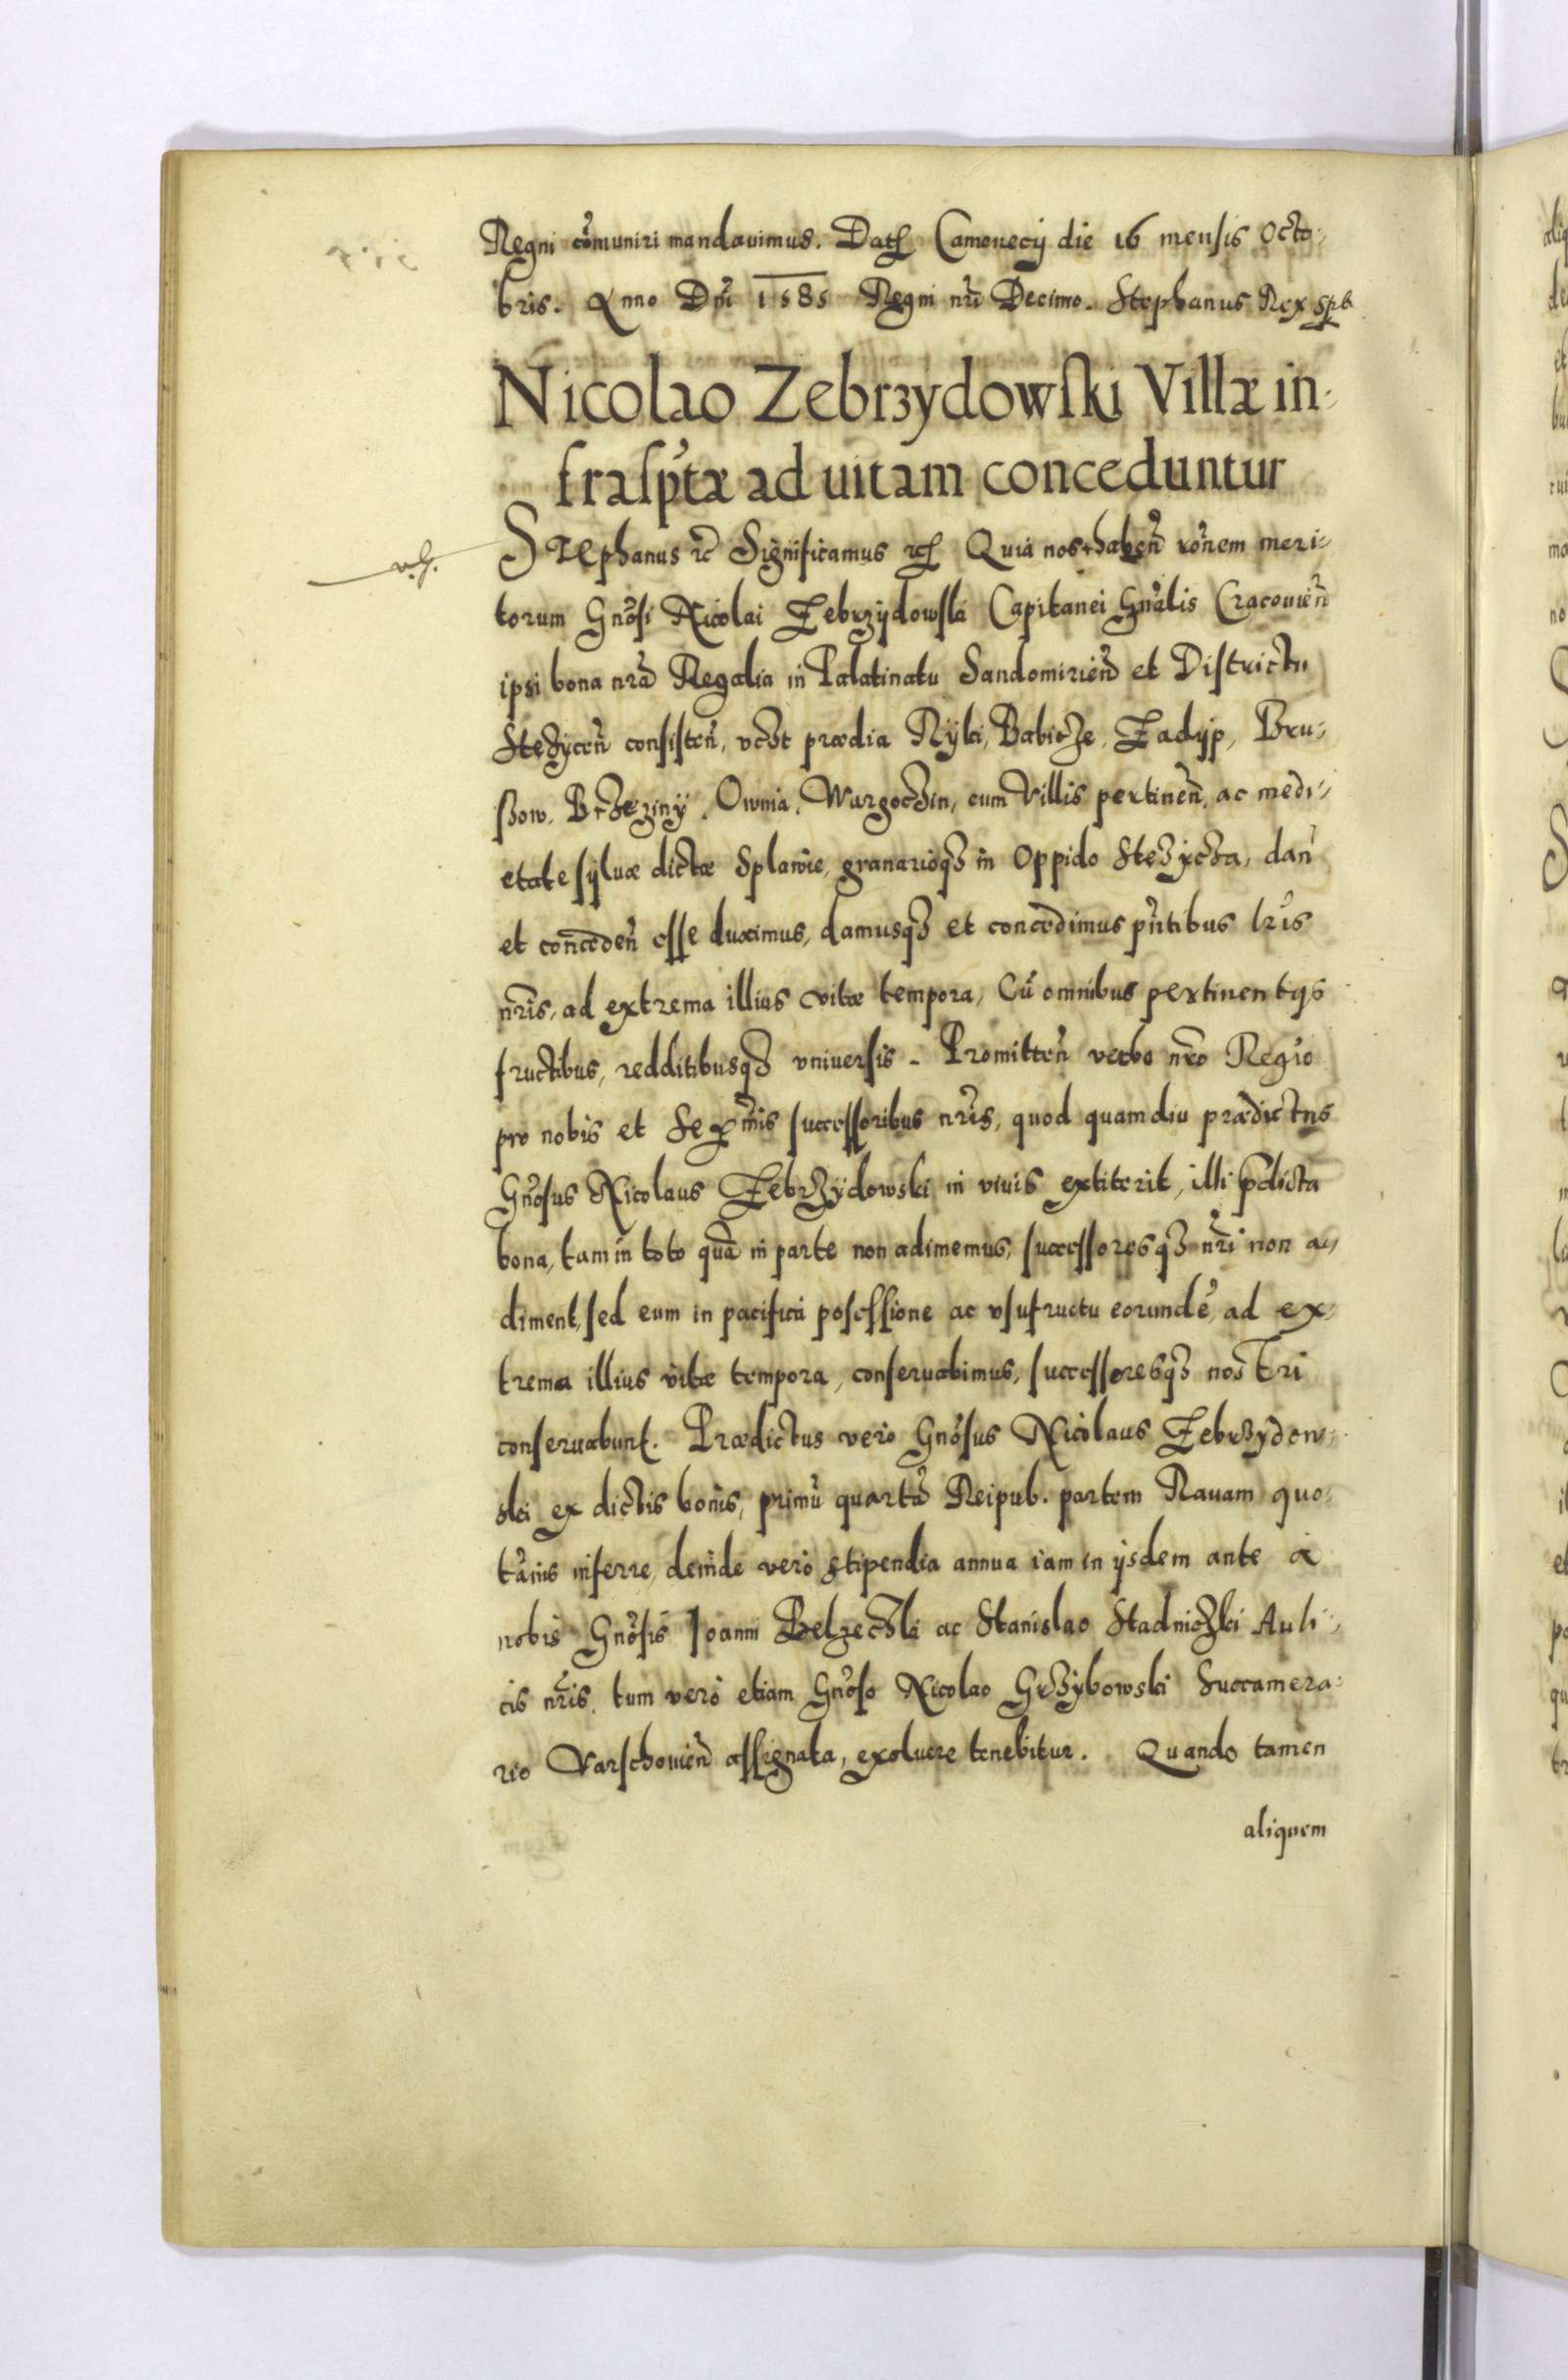 Regni com̃uniri mandauimus. Dat Camenecÿ die 16 mensis Octo-
bris. Anno Dñi 1585 Regni nr̃i Decimo. Stephanus Rex sst
Nicolao Zebrzydowski Villæ in-
frasp̃tæ ad uitam conceduntur
Stephanus rc̃ Significamus Quia nos habeñ rõnem meri-
torum Gñosi Nicolai Zebrzÿdowski Capitanei Gñalis Cracouieñ
ipsi bona nrã Regalia in Palatinatu Sandomirieñ et Districtu
Stezyceñ consisteñ, vcdt prædia Rÿki, Babicze, Zadÿp, Bru-
ssow, Brzezinÿ, Ownia, Wargoczin, cum Villis pertineñ, ac medi-
etate sÿluæ dictæ Splawie, granarioqz in Oppido Stezÿcza, dañ
et concedeñ esse duximus, damusqz et concedimus pñtibus lrĩs
nrĩs, ad extrema illius vitæ tempora, Cũ omnibus pertinentÿs
fructibus, redditibusqz vniuersis. Promitteñ verbo nrõ Regio
pro nobis et Serm̃is successoribus nrĩs, quod quamdiu prædictus
Gñosus Nicolaus Zebrzÿdowski in viuis extiterit, illi p̃dicta
bona, tam in toto quã in parte non adimemus, successoresqz nrĩ non a-
diment, sed eum in pacifica posessione ac vsufructu eorundẽ, ad ex-
trema illius vitæ tempora, conseruabimus, successoresqz nostri
conseruabunt. Prædictus vero Gñosus Nicolaus Zebrzÿdow-
ski ex dictis bonis, primũ quartã Reipub. partem Rauam quo-
tãnis inferre, deinde vero stipendia annua iam in ÿsdem ante a
nobis Gñosis Ioanni Belzeczki ac Stanislao Stadniczki Auli-
cis nrĩs, tum vero etiam Gñoso Nicolao Grzÿbowski Succamera-
rio Varschouieñ assignata, exoluere tenebitur. Quando tamen
aliquem